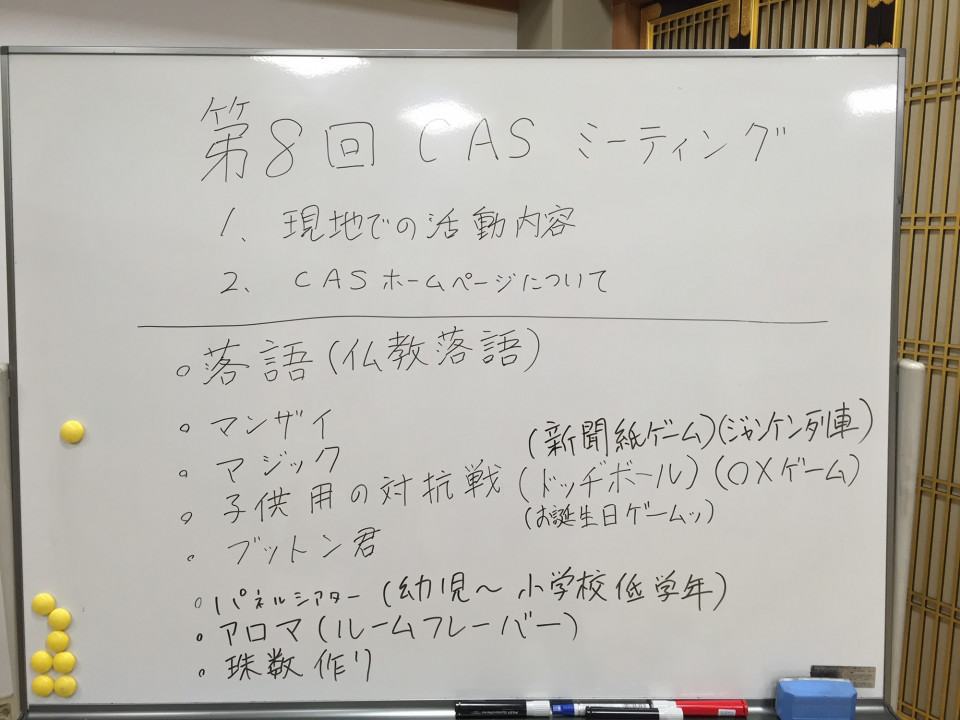 第8回 CAS ミーティング
1、現地での活動内容
2、CASホームページについて
○落語(仏教落語)
○マンザイ
○マジック
(新聞紙ゲーム)(ジャンケン列車)
○子供用の対抗戦(ドッヂボール)(○×ゲーム)
(お誕生日ゲームッ)
○ブットン君
○パネルシアター(幼児〜小学校低学年)
○アロマ(ルームフレーバー)
○珠数作り